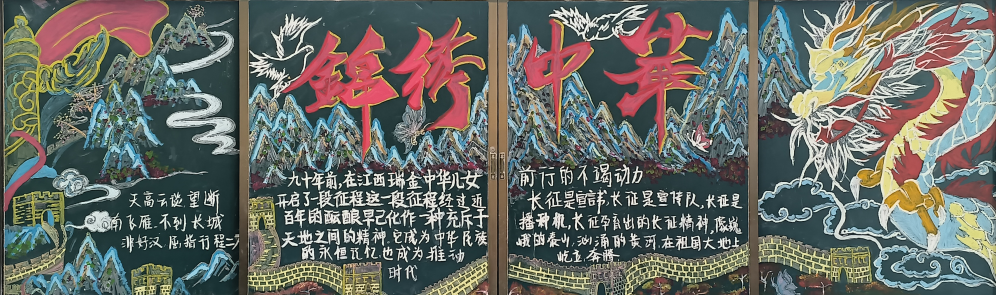 锦绣中华
天高云淡望断
南飞雁不到长城
非好汉屈指行程二
九十年前,在江西瑞金中华儿女
开启了一段征程这一段征程经过近
百年的酝酿早已化作一种充斥于
天地之间的精神.它成为中华民族
的永恒记忆也成为推动
时代
前行的不竭动力
长征是宣言书,长征是宣传队,长征是
播种机,长征孕育出的长征精神,像巍
峨的泰山,汹涌的黄河.在祖国大地上
屹立奔腾